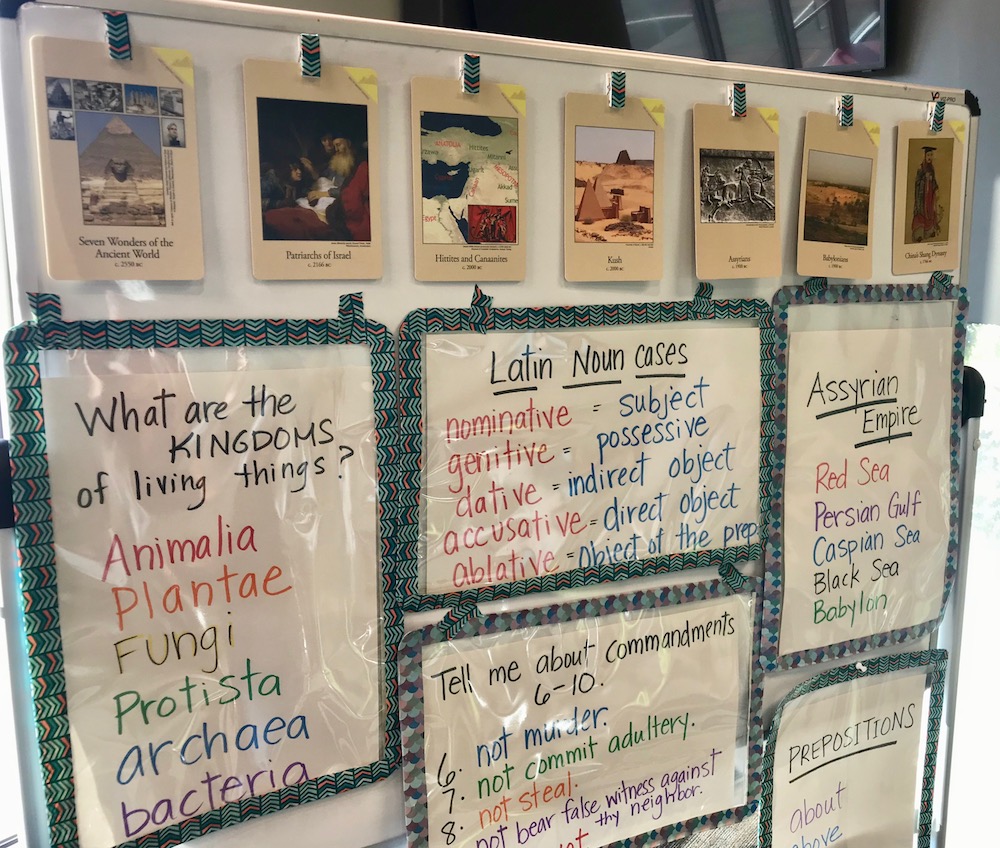 Seven Wonders of the
Ancient World
c. 2550 BC
Patriarchs of Israel
c. 2166 BC
Hittites and Canaanites
c. 2000 BC
Kush
c. 2000 BC
Assyrians
Babylonians
China's Shang Dynasty
What are the
KINGDOMS
of living things?
Animalia
Plantae
Fungi
Protista
archaea
bacteria
Latin Noun cases
nominative = subject
genitive = possessive
dative = indirect object
accusative = direct object
ablative = object of the prep
Tell me about commandments
6-10.
6. not murder.
7. not commit adultery.
8. not steal.
not bear false witness against
thy neighbor.
Assyrian
Empire
Red Sea
Persian Gulf
Caspian Sea
Black Sea
Babylon
PREPOSITIONS
about
above